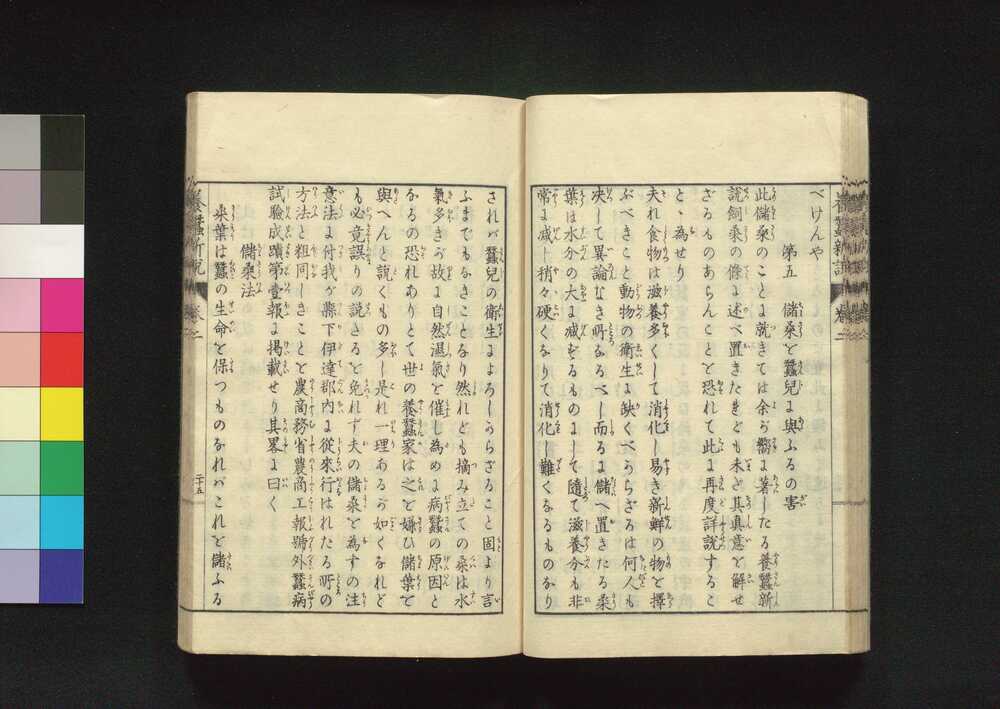 べけんや
第五 儲桑を蠶兒に與ふるの害
此儲桑のことに就きては余が嚮に著したる養蠶新
說飼桑の條に述べ置きたれども未だ其真意を解せ
ざるものあらんことを恐れて此に再度詳說するこ
とゝ為せり
夫れ食物は滋養多くして消化し易き新鮮の物を擇
ぶべきこと動物の衛生に缺くべからざるは何人も
决して異論なき所なるべし而るに儲へ置きたる桑
葉は水分の大に减ずるものにして隨て滋養分も非
常に减じ稍々硬くなりて消化し難くなるものなり
されバ蠶兒の衛生によろしからざること固より言
ふまでもなきことなり然れども摘み立ての桑は水
氣多きが故に自然濕氣を催し為めに病蠶の原因と
なるの恐れありとて世の養蠶家は之を嫌ひ儲葉を
與へんと說くもの多し是れ一理あるが如くなれど
も必竟誤りの說たるを免れず夫の儲桑を為すの注
意法に付我が縣下伊達郡內に從來行はれたる所の
方法と粗同じきことを農商務省農商工報號外蠶病
試驗成蹟第壹報に掲載せり其畧に曰く
儲桑法
桑葉は蠶の生命を保つものなれバこれを儲ふる
二十五